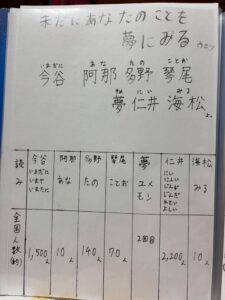 未だにあなたのことも
夢にみる ウェッ
いまだに あな たの ことお
今谷 阿那 多野 琴尾
ゆめ にい みる
夢 仁井 海松
読み 今谷 阿那 多野 琴尾 夢 仁井 海松
いまだに
いまや
いまたに
あな
たの
ことお
ユメ
モン
にい
にんい
じんい
よしい
みる
全国人数(約) 1,500人 10人 140人 70人 2回目 2,200人 10人